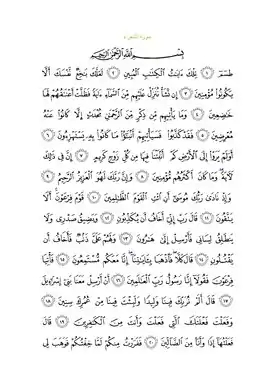 سورة الشعراء
بسم الله الرحمن الرحيم
طسم ۝١ تلك آيات الكتاب المبين ۝٢ لعلك باخع نفسك ألا
يكونوا مؤمنين ۝٣ إن نشأ ننزل عليهم من السماء آية فظلت أعناقهم لها
خاضعين ۝٤ وما يأتيهم من ذكر من الرحمن محدث إلا كانوا عنه
معرضين ۝٥ فقد كذبوا فسيأتيهم أنباء ما كانوا به يستهزءون ۝٦
أولم يروا إلى الأرض كم أنبتنا فيها من كل زوج كريم ۝٧ إن في ذلك
لآية وما كان أكثرهم مؤمنين ۝٨ وإن ربك لهو العزيز الرحيم ۝٩
وإذ نادى ربك موسى أن ائت القوم الظالمين ۝١٠ قوم فرعون ألا
يتقون ۝١١ قال رب إني أخاف أن يكذبون ۝١٢ ويضيق صدري ولا
ينطلق لساني فأرسل إلى هارون ۝١٣ ولهم علي ذنب فأخاف أن
يقتلون ۝١٤ قال كلا فاذهبا بآياتنا إنا معكم مستمعون ۝١٥ فأتيا
فرعون فقولا إنا رسول رب العالمين ۝١٦ أن أرسل معنا بني إسرائيل
۝١٧ قال ألم نربك فينا وليدا ولبثت فينا من عمرك سنين ۝١٨
وفعلت فعلتك التي فعلت وأنت من الكافرين ۝١٩ قال
فعلتها إذا وأنا من الضالين ۝٢٠ ففررت منكم لما خفتكم فوهب لي